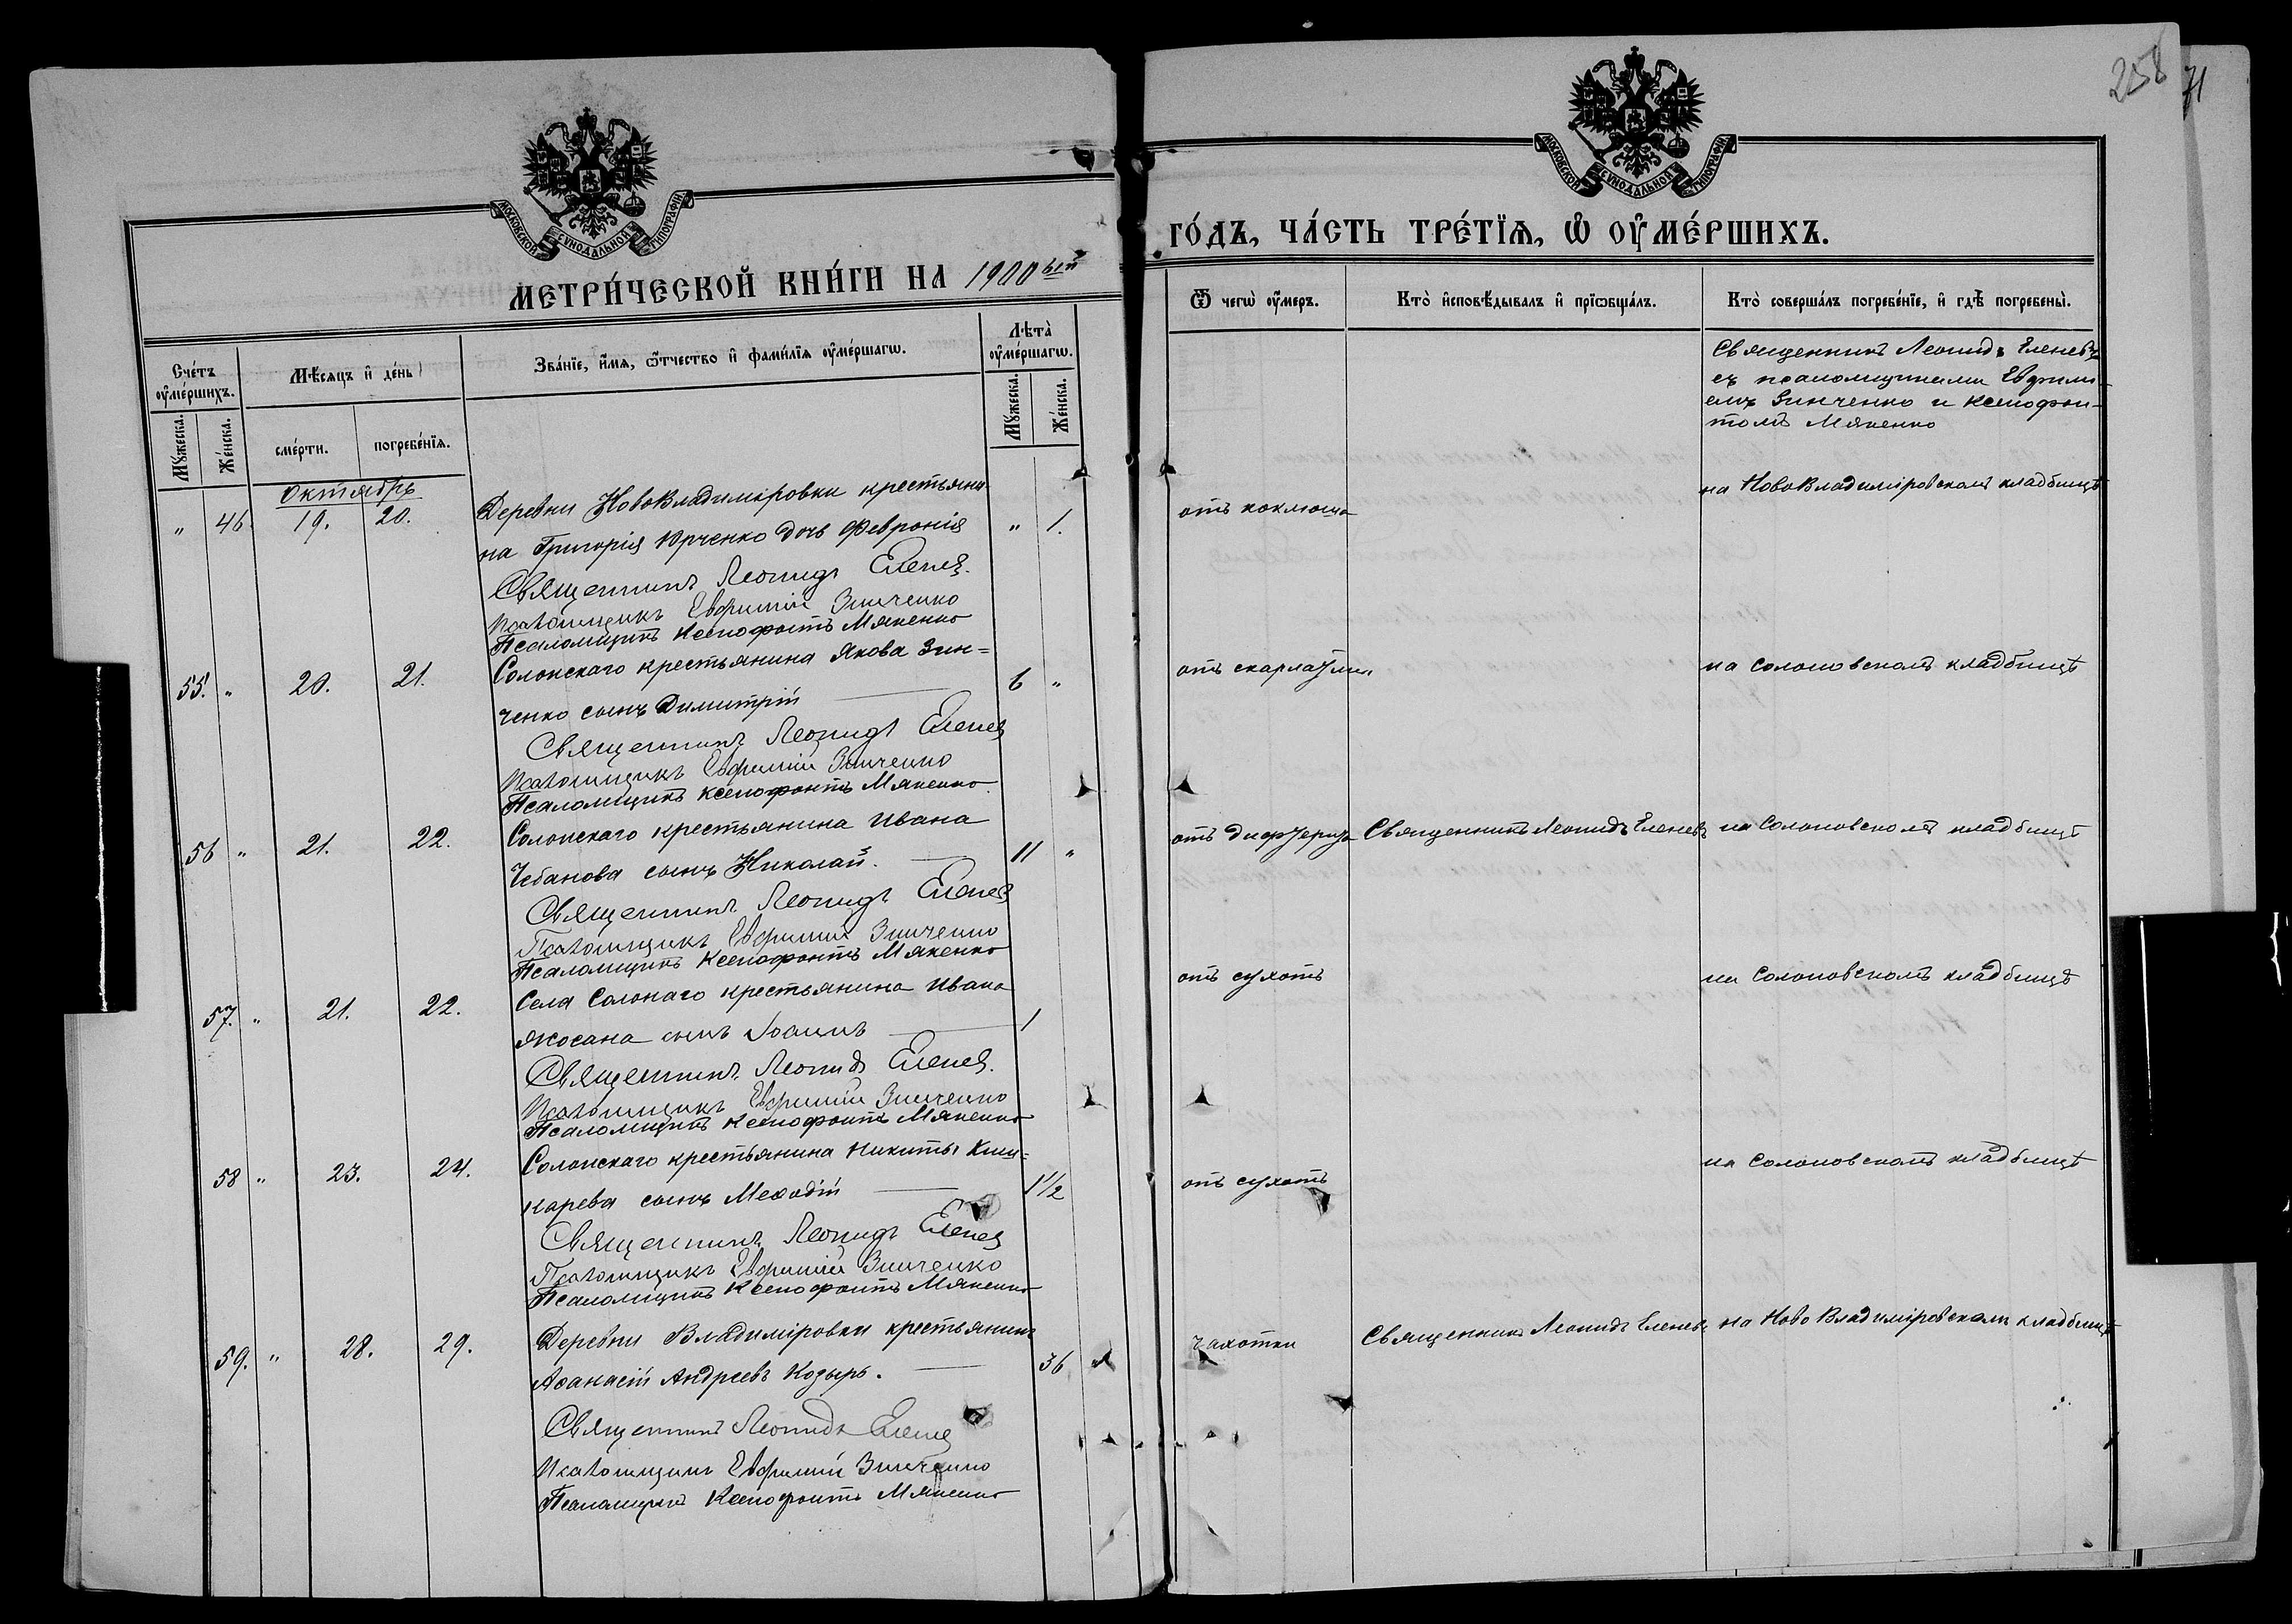 258
71
МОСКОВСКОЙ СѴНОДАЛЬНОЙ ТИПОГРАФІИ
МОСКОВСКОЙ СѴНОДАЛЬНОЙ ТИПОГРАФІИ
МЕТРИ́ЧЕСКОЙ КНИ́ГИ НА 1900ый
ГО́ДЪ, ЧА́СТЬ ТРЕ́ТЇѦ, Ѡ҆ ОУ҆МЕ́РШИХЪ.
Сче́тъ оу҆ме́ршихъ.
Мꙋ́жеска.
Же́нска.
Мѣ́сѧцъ и҆ де́нь
сме́рти.
погребе́нїѧ.
Зва́нїе, и҆́мѧ, ѻ҆́тчество и҆ фами́лїѧ оу҆ме́ршагѡ.
Лѣ́та оу҆ме́ршагѡ.
Мꙋ́жеска.
Же́нска.
Ѿ чегѡ̀ оу҆́меръ.
Кто̀ и҆сповѣ́дывалъ и҆ прїѡбща́лъ.
Кто̀ соверша́лъ погребе́нїе, и҆ гдѣ̀ погребены̀.
Священникъ Леонидъ Еленевъ
съ псаломщиками Евфими-
емъ Зинченко и Ксенофон-
томъ Мякенко
Октябрь
" 46 19. 20. Деревни НовоВладиміровки крестьяни-
на Григорія Юрченко дочь Февронія " 1. отъ коклюша на НовоВладиміровскомъ кладбищѣ
Священникъ Леонидъ Еленев.
Псаломщикъ Евфимій Зинченко
Псаломщикъ Ксенофонтъ Мякенко
55. " 20. 21. Солонскаго крестьянина Якова Зин=
ченко сынъ Димитрій 6 " отъ скарлатины на Солоновскомъ кладбищѣ
Священникъ Леонидъ Еленев
Псаломщикъ Евфимій Зинченко
Псаломщикъ Ксенофонтъ Мякенко.
56 " 21. 22. Солонскаго крестьянина Ивана
Чебанова сынъ Николай. 11 " отъ дифтерита Священникъ Леонидъ Еленевъ на Солоновскомъ кладбищѣ
Священникъ Леонидъ Еленев
Псаломщикъ Евфимій Зинченко
Псаломщикъ Ксенофонтъ Мякенко
57. " 21. 22. Села Солонаго крестьянина Ивана
сынъ Іоаннъ 1 отъ сухотъ на Солоновскомъ кладбищѣ
Священникъ Леонидъ Еленев.
Псаломщикъ Евфимій Зинченко
Псаломщикъ Ксенофонтъ Мякенко
58 " 23. 24. Солонскаго крестьянина Никиты Киш=
карева сынъ Меѳодій 1 1/2 отъ сухотъ на Солоновскомъ кладбищѣ
Священникъ Леонидъ Еленев
Псаломщикъ Евфимій Зинченко
Псаломщикъ Ксенофонтъ Мякенко
59. " 28. 29. Деревни Владиміровки крестьянинъ
Аѳанасій Андреевъ Козырь. 36 " чахотки Священникъ Леонидъ Еленевъ на Ново Владиміровскомъ кладбищѣ
Священникъ Леонидъ Еленев
Псаломщикъ Евфимій Зинченко
Псаломщикъ Ксенофонтъ Мякенко